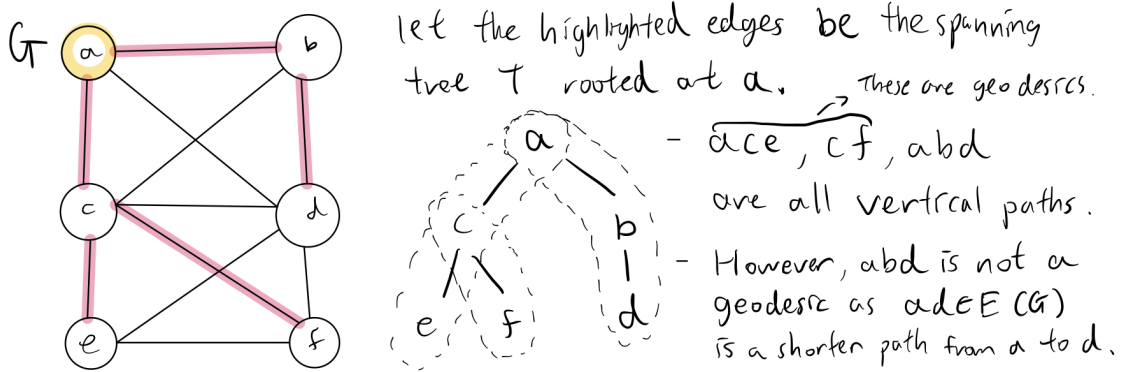 G
a
b
c
d
e
f
let the highlighted edges be the spanning
tree T rooted at a.
These are geodesics.
a
c
b
e
f
d
- ace, cf, abd
are all vertical paths.
- However, abd is not a
geodesic as ad∈E(G)
is a shorter path from a to d.